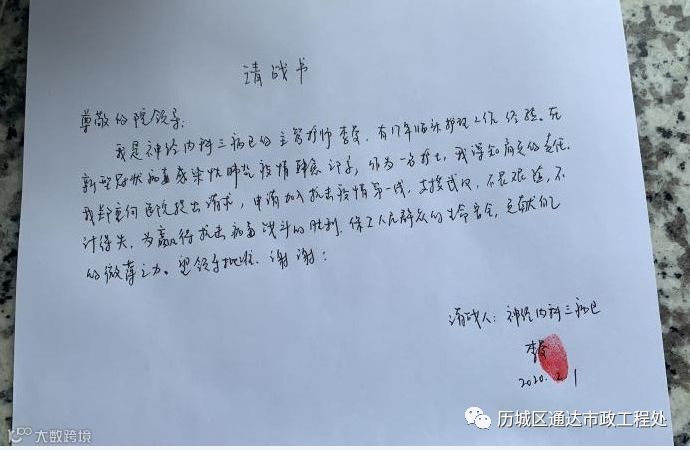 请战书
尊敬的院领导：
我是神经内科三病区的主管护师李 ，有17年临床护理工作经验。在
新型冠状病毒感染性肺炎疫情肆 之 ，作为一名护士，我深知肩负的责任。
我郑重向医院提出请求，申请加入抗击疫情第一线，支援武汉，不畏艰险，不
计得失，为赢得抗击病毒战斗的胜利，保卫人民群众的生命安全，贡献自己
的微薄之力。望领导批准。谢谢：
请战人：神经内科三病区
李
2020.2.1
历城区通达市政工程处
大数跨境